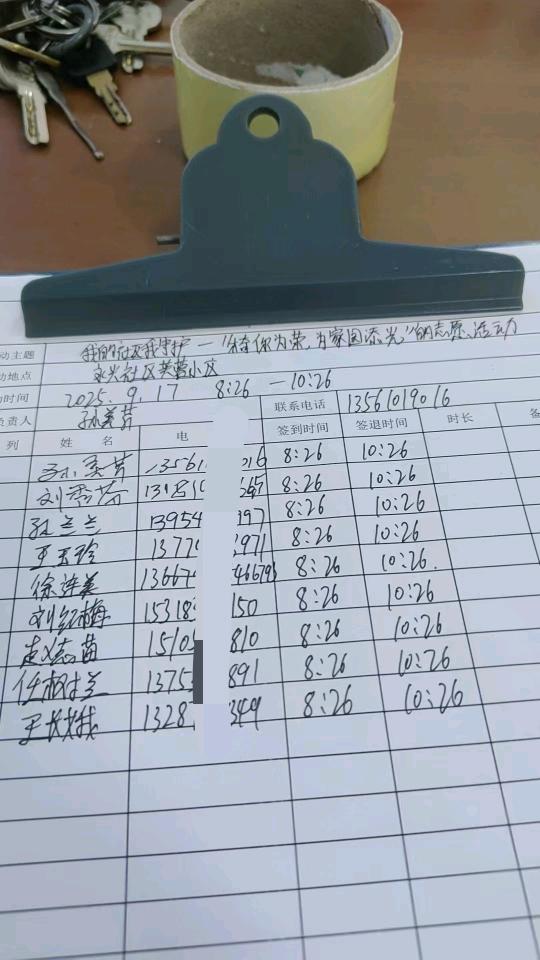 动主题 我的社区我守护—"待你为荣,为家园添光"的志愿活动
动地点 永兴社区芙蓉小区
动时间 2025.9.17 8:26—10:26
负责人 孙美芳 联系电话 13561019016
列 姓 名 电 签到时间 签退时间 时长 备
孙美芳 13561 016 8:26 10:26
刘秀芳 8:26 10:26
孙兰兰 13954 197 8:26 10:26
王玉珍 1377 971 8:26 10:26
徐连美 1366 8:26 10:26.
刘红梅 15318 150 8:26 10:26
赵志苗 15105 810 8:26 10:26
任树兰 1375 891 8:26 10:26
1328 349 8:26 10:26